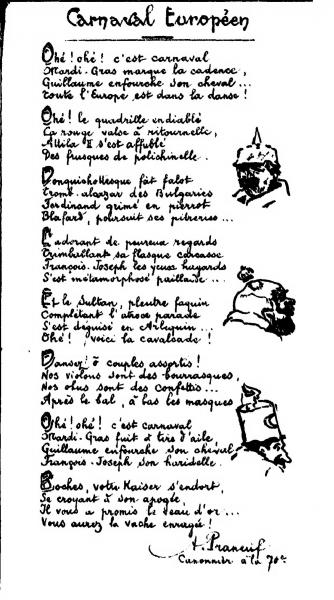 Carnaval Européen
Ohé! ohé! c'est carnaval
Mardi-Gras marque la cadence,
Guillaume enfourche son cheval...
Toute l'Europe est dans la danse!
Ohé! le quadrille endiablé
La rouge valse à ritournelle,
Attila II s'est affublé
Des frusques de polichinelle.
Donquishottesque, fat falot
Tromb-alcazar des Bulgaries
Ferdinand grimé en pierrot
Blafard, poursuit ses pitreries...
L'adorant de peureux regards
Trimballant sa flasque carcasse
François-Joseph les yeux hagards
S'est métamorphosé paillasse...
Et le Sultan, pleutre faquin
Complétant l'atroce parade
S'est déguisé en Arlequin...
Ohé! voici la cavalcade!
Dansez! ô couples assortis!
Nos violons sont des bourrasques,
Nos obus sont des confettis...
Après le bal, à bas les masques
Ohé! ohé! c'est carnaval
Mardi-Gras fuit à tire d'aile,
Guillaume enfourche son cheval
François-Joseph son haridelle.
Boches, votre Kaiser s'endort,
Se croyant à son apogée
Il vous a promis le veau d'or...
Vous aurez la vache enragée!
Praneuf
Canonnier à la 70e